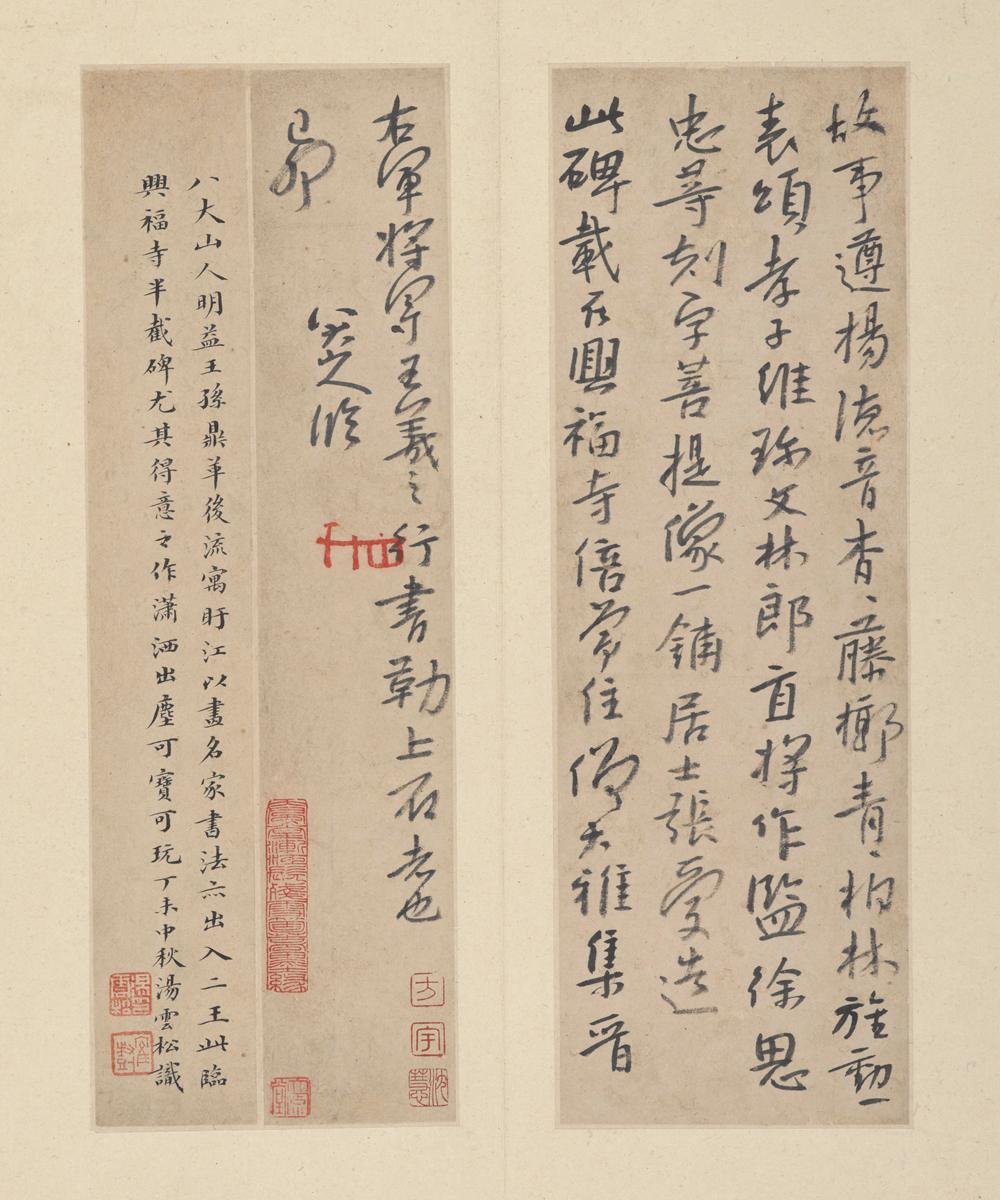 故事遵揚德音杳々藤槨青々柏林旌勳
表頌孝子維珍文林郎直將作監徐思
忠等刻字菩提像一鋪居士張愛造
此碑載在興福寺倍常住僧大雅集晉
右軍將軍王羲之行書勒上石者也
已卯
八大山人臨
八大山人明益王孫鼎革後流寓盱江以畫名家書法亦出入二王此臨
興福寺半截碑尤其得意之作瀟洒出塵可寶可玩丁未中秋湯雲松識
方
宇